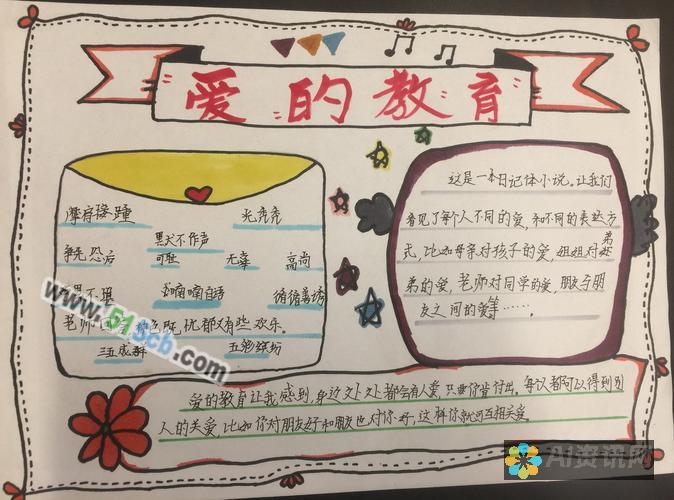 爱的教育
摩肩接踵 光秃秃
默不作声
争先恐后 可耻 无辜 高尚
不理 喃喃自语 循循善诱
老师 色既忧郁又有些欢乐。
三五成群 五彩缤纷
这是一本日记体小说。让我们
看见了每个人不同的爱,和不同的表达方
式,比如母亲对孩子的爱,姐姐对弟
弟的爱,老师对同学的爱,朋友与朋
友之间的爱等……
爱的教育让我感到,身边处处都会有人爱,只要你肯付出。每次都可以得到别
人的关爱,比如你对朋友好和朋友也对你好,这样你就可互相关爱
www.51scb.com
AI资讯网